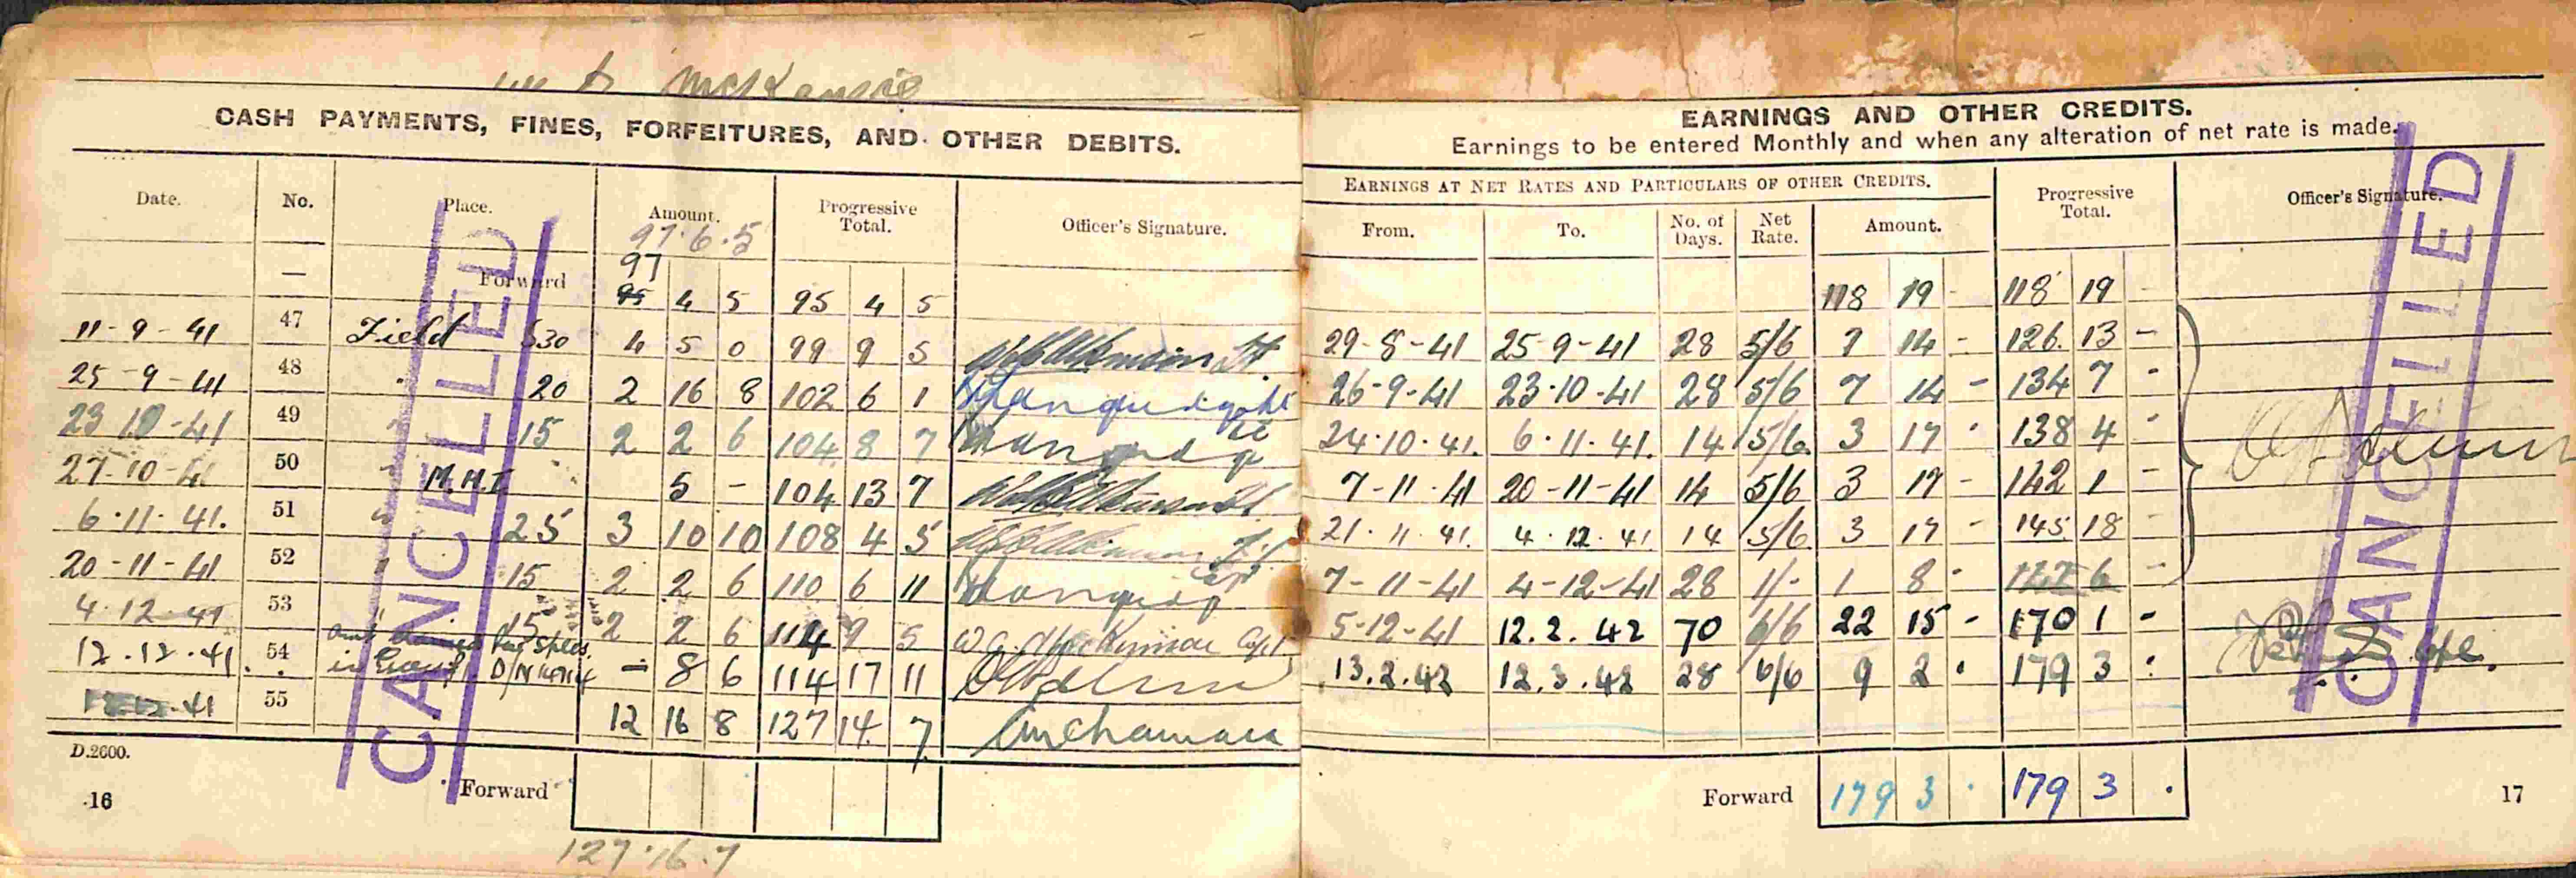 to McKenzie
CASH PAYMENTS, FINES, FORFEITURES, AND OTHER DEBITS.
Date. No. Place. Amount. Progressive Total. Officer's Signature.
97.6.5
97
— Forward 95 4 5 95 4 5
11-9-41 47 Field 530 4 5 0 99 9 5
25-9-41 48 " 20 2 16 8 102 6 1
23 10-41 49 " 15 2 2 6 104 8 7
27-10-41 50 " M.H.I 5 - 104 13 7
6.11.41. 51 " 25 3 10 10 108 4 5
20-11-41 52 " 15 2 2 6 110 6 11
4.12.41 53 " 15 2 2 6 114 9 5
12.12.41. 54 in D/N - 8 6 114 17 11
41 55 12 16 8 127 14 7
D.2600.
Forward
16
127.16.7
CANCELLED
EARNINGS AND OTHER CREDITS.
Earnings to be entered Monthly and when any alteration of net rate is made.
EARNINGS AT NET RATES AND PARTICULARS OF OTHER CREDITS. Progressive Total. Officer's Signature.
From. To. No. of Days. Net Rate. Amount.
118 19 - 118 19 -
29-8-41 25-9-41 28 5/6 7 14 - 126. 13 -
26-9-41 23.10-41 28 5/6 7 14 - 134 7 -
24.10.41. 6.11.41. 14 5/6 3 17 - 138 4 -
7-11-41 20-11-41 14 5/6 3 17 - 142 1 -
21.11.41. 4.12.41 14 5/6 3 17 - 145 18 -
7-11-41 4-12-41 28 1/- 1 8 - 147 6 -
5-12-41 12.2.42 70 6/6 22 15 - 170 1 -
13.2.42 12.3.42 28 6/6 9 2 . 179 3 .
Forward 179 3 . 179 3 .
17
CANCELLED